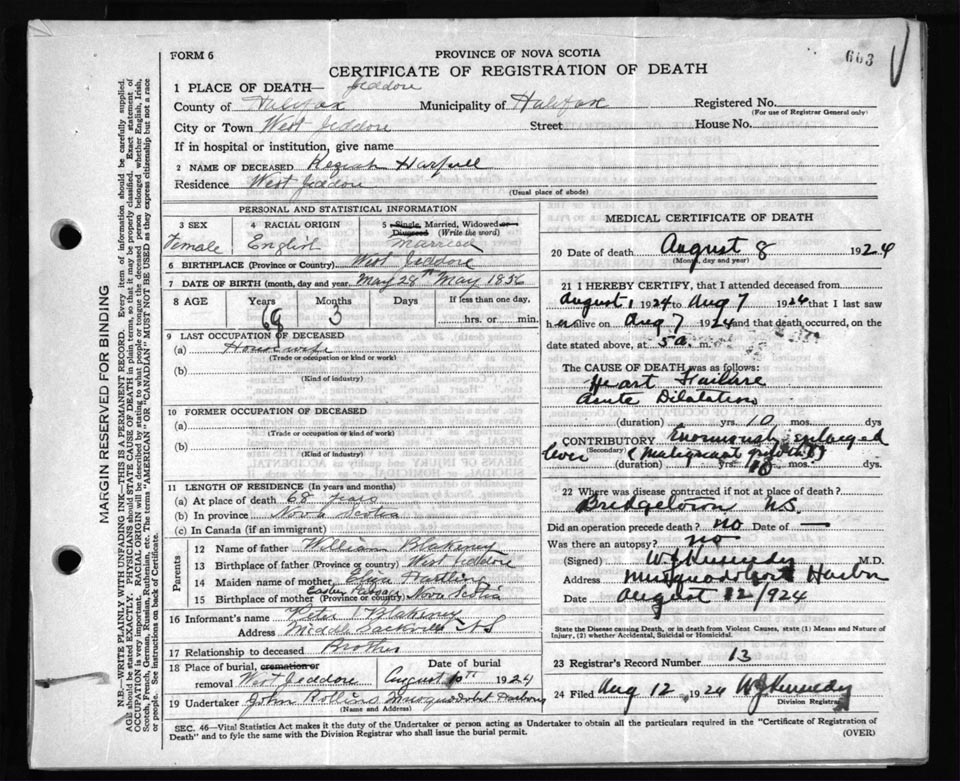 FORM 6
PROVINCE OF NOVA SCOTIA
663
CERTIFICATE OF REGISTRATION OF DEATH
1 PLACE OF DEATH— Jeddore
County of Halifax Municipality of Halifax Registered No.
(For use of Registrar General only)
City or Town West Jeddore Street House No.
If in hospital or institution, give name
2 NAME OF DECEASED Keziah Harpell
Residence West Jeddore
(Usual place of abode)
PERSONAL AND STATISTICAL INFORMATION
3 SEX Female
4 RACIAL ORIGIN English
5 Single, Married, Widowed or Divorced (Write the word) Married
6 BIRTHPLACE (Province or Country) West Jeddore
7 DATE OF BIRTH (month, day and year. May 28th May 1856
8 AGE Years Months Days If less than one day,
3 hrs. or min.
9 LAST OCCUPATION OF DECEASED
(a) Housewife
(Trade or occupation or kind or work)
(b)
(Kind of industry)
10 FORMER OCCUPATION OF DECEASED
(a)
(Trade or occupation or kind of work)
(b)
(Kind of Industry)
11 LENGTH OF RESIDENCE (In years and months)
(a) At place of death 68 years
(b) In province Nova Scotia
(c) In Canada (if an immigrant)
Parents
12 Name of father William Blakeney
13 Birthplace of father (Province or country) West Jeddore
14 Maiden name of mother, Eliza Hartling
15 Birthplace of mother (Province or country) Eastern Passage Nova Scotia
16 Informant's name Peter Blakeney
Address Middle Sackville N S
17 Relationship to deceased Brother
18 Place of burial, cremation or removal West Jeddore Date of burial August 10th 1924
19 Undertaker John Rollins Musquodoboit Harbour
(Name and Address)
MEDICAL CERTIFICATE OF DEATH
20 Date of death August 8 1924
(Month, day and year)
21 I HEREBY CERTIFY, that I attended deceased from
August 1 1924 to Aug 7 1924 that I last saw
h er alive on Aug 7 1924 and that death occurred, on the
date stated above, at 5 a. m.
The CAUSE OF DEATH was as follows:
Heart Failure
Acute Dilatation
(duration) yrs. 10 mos. dys
CONTRIBUTORY Enormously enlarged
(Secondary) liver (Malignant growth)
(duration) yrs. 18 mos. dys.
22 Where was disease contracted if not at place of death?
Bridgetown N.S.
Did an operation precede death? no Date of —
Was there an autopsy? no
(Signed) W J Kennedy M.D.
Address Musquodoboit Harbor
Date August 12 1924
State the Disease causing Death, or in death from Violent Causes, state (1) Means and Nature of
Injury, (2) whether Accidental, Suicidal or Homicidal.
23 Registrar's Record Number 13
24 Filed Aug 12, 1924 W J Kennedy
Division Registrar
SEC. 46—Vital Statistics Act makes it the duty of the Undertaker or person acting as Undertaker to obtain all the particulars required in the "Certificate of Registration of
Death" and to fyle the same with the Division Registrar who shall issue the burial permit.
(OVER)
MARGIN RESERVED FOR BINDING
N.B.—WRITE PLAINLY WITH UNFADING INK—THIS IS A PERMANENT RECORD. Every item of information should be carefully supplied.
AGE should be stated EXACTLY. PHYSICIANS should STATE CAUSE OF DEATH in plain terms, so that it may be properly classified. Exact statement of
OCCUPATION is very important. RACIAL ORIGIN will be described by stating to what people or tongue the deceased person belonged whether English, Irish,
Scotch, French, German, Russian, Ruthenian, etc. The terms "AMERICAN" OR "CANADIAN" MUST NOT BE USED as they express citizenship but not a race
or people. See instructions on back of Certificate.